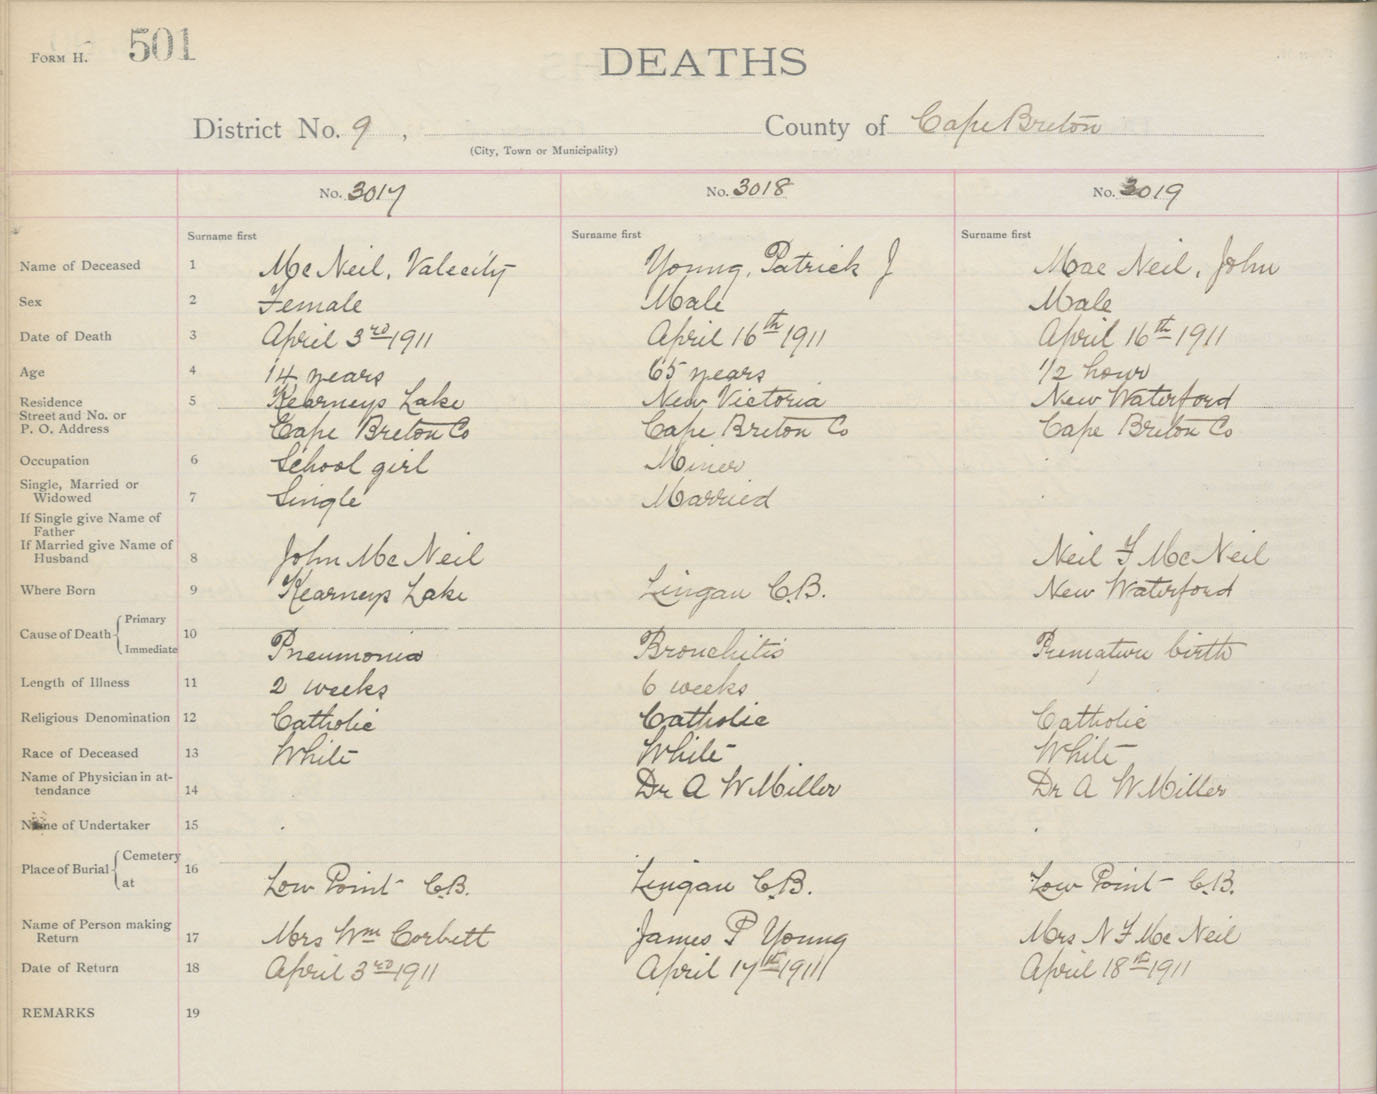 FORM H. 501
DEATHS
District No. 9 , County of Cape Breton
(City, Town or Municipality)
No. 3017 No. 3018 No. 3019
Surname first Surname first Surname first
Name of Deceased 1 McNeil, Young, Patrick J Mac Neil, John
Sex 2 Female Male Male
Date of Death 3 April 3rd 1911 April 16th 1911 April 16th 1911
Age 4 14 years 65 years 1/2 hour
Residence 5 Kearneys Lake New Victoria New Waterford
Street and No. or
P. O. Address Cape Breton Co Cape Breton Co Cape Breton Co
Occupation 6 School girl Miner
Single, Married or
Widowed 7 Single Married
If Single give Name of
Father
If Married give Name of
Husband 8 John McNeil Neil F McNeil
Where Born 9 Kearneys Lake Lingan C.B. New Waterford
Cause of Death Primary 10
Immediate Pneumonia Bronchitis Premature birth
Length of Illness 11 2 weeks 6 weeks
Religious Denomination 12 Catholic Catholic Catholic
Race of Deceased 13 White White White
Name of Physician in at-
tendance 14 Dr A W Miller Dr A W Miller
Name of Undertaker 15
Place of Burial Cemetery 16
at Low Point C.B. Lingan C.B. Low Point C.B.
Name of Person making
Return 17 Mrs Wm Corbett James P Young Mrs N F McNeil
Date of Return 18 April 3rd 1911 April 17th 1911 April 18th 1911
REMARKS 19